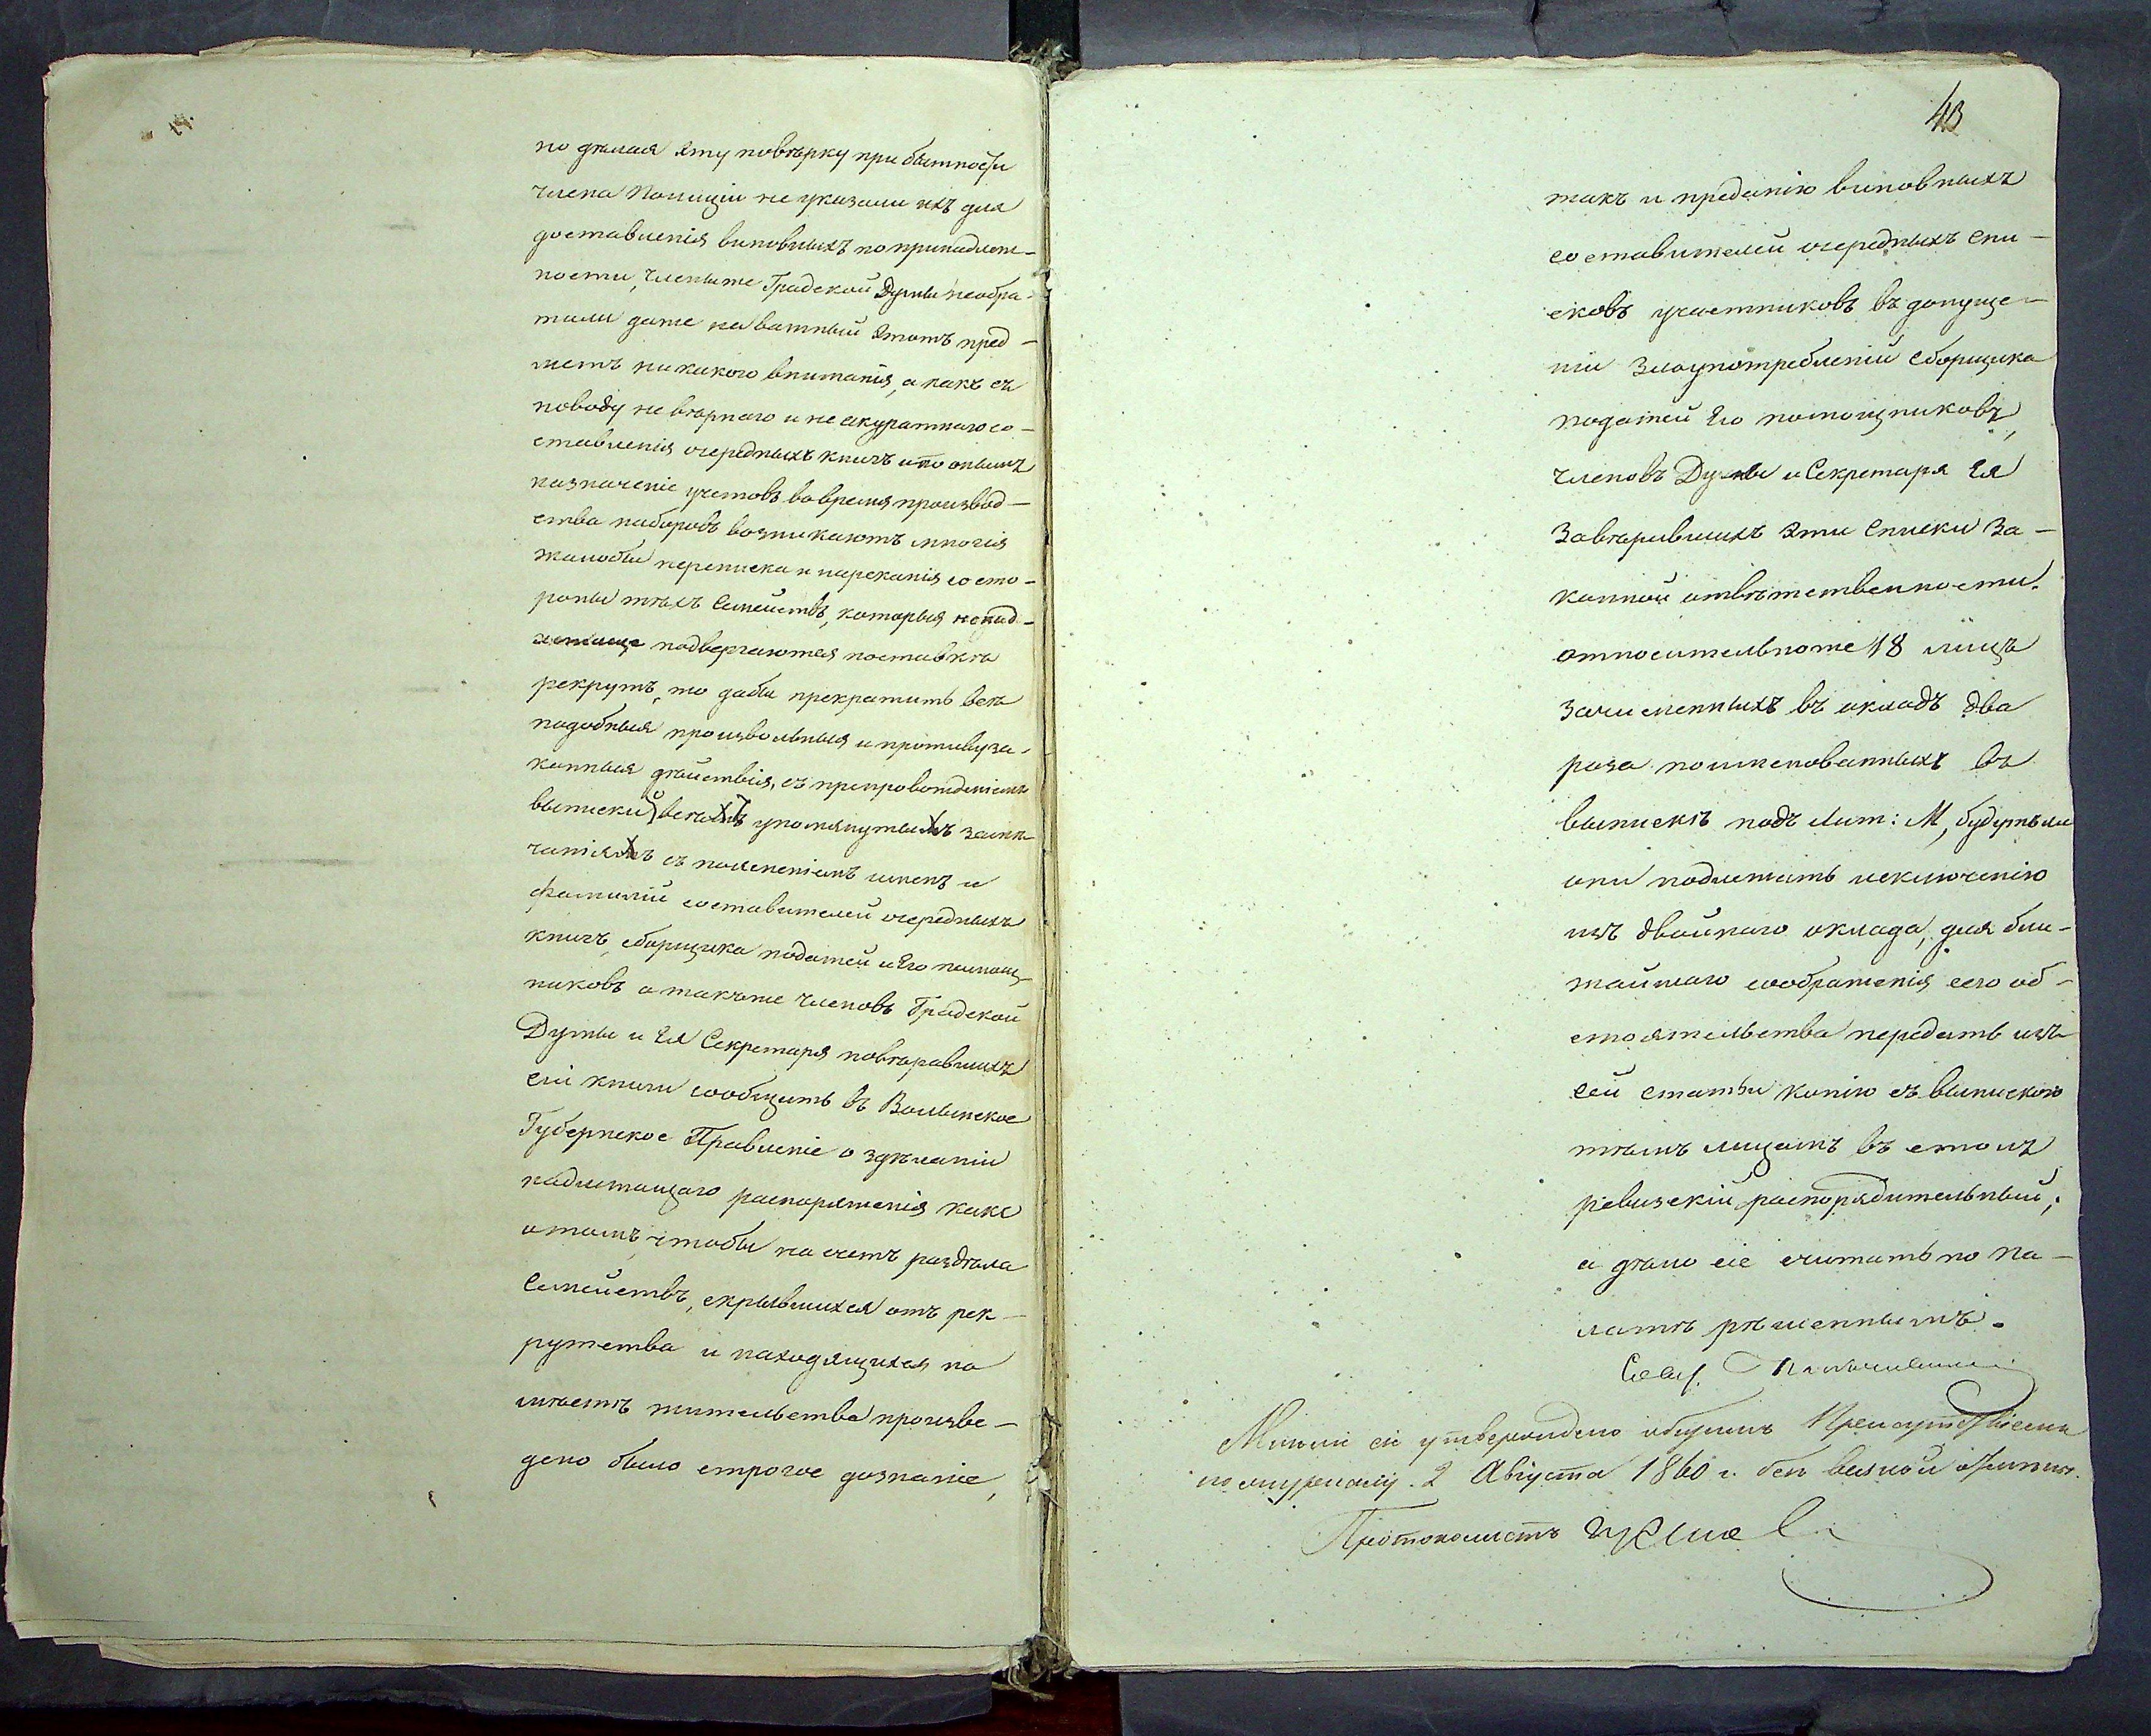 но делая эту повѣрку при бытности
члена Полиціи не указали ихъ для
доставленія виновныхъ по принадлеж-
ности, члены же Градской Думы необра-
тили даже на важный этотъ пред-
метъ никакого вниманія, а какъ съ
поводу не вѣрнаго и не акуратнаго со-
ставленія очередныхъ книгъ и по онымъ
назначеніе учетовъ во время производ-
ства наборовъ возникаютъ многія
жалобы переписка и нареканія со сто-
роны тѣхъ Семействъ, которыя непод-
лежаще подвергаются поставкѣ
рекрутъ, то дабы прекратить всѣ
подобныя произвольныя и противуза-
конныя дѣйствія, съ препровожденіемъ
выписки всѣхъ упомянутыхъ замѣ-
чаніяхъ съ поясненіемъ именъ и
фамилій составителей очередныхъ
книгъ, сборщика податей и Его помощ-
никовъ а также членовъ Градской
Думы и Ея Секретаря повѣравшихъ
сіи книги сообщить въ Волынское
Губернское Правленіе о здѣланіи
надлежащаго распоряженія какъ
о томъ, чтобы на счетъ раздѣла
Семействъ, скрывшихся отъ рек-
рутства и находящихся на
мѣстѣ жительства произве-
дено было строгое дознаніе,
43
такъ и преданію виновныхъ
составителей очередныхъ спи-
сковъ участниковъ въ допуще-
ніи злоупотребленій сборщика
податей Его помощниковъ,
членовъ Думы и Секретаря Ея
завѣрившихъ эти списки за-
конной отвѣтственности.
относительно же 18 лицъ
зачисленныхъ въ окладъ два
раза поименованныхъ въ
выпискѣ подъ лит: М, будутъ ли
они подлежать исключенію
изъ двойнаго оклада, для бли-
жайшаго соображенія сего об-
стоятельства передать изъ
сей статьи копію съ выпискою
тѣмъ лицамъ въ столъ
ревизскій распорядительный,
а дѣло сіе считать по Па-
латѣ рѣшеннымъ.
Мнѣніе сіе утверждено общимъ Присутствіемъ
по журналу 2 Августа 1860 г. безъ всякой отмѣны.
Протоколистъ